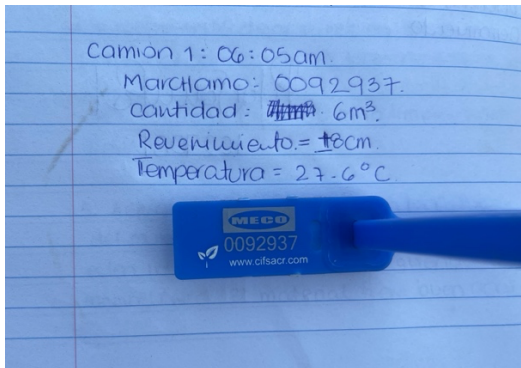 Camion 1: 06:05am.
Marchamo: 0092937.
Cantidad: 6m³.
Revenimiento = 18cm.
Temperatura = 27.6°C
MECO
0092937
www.cifsacr.com